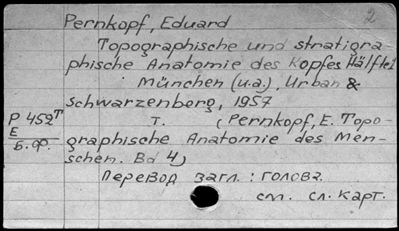 2
Pernkopf, Eduard
Topographische und stratigra-
phische Anatomie des Kopfes Hälfte 1
München (u.a.), Urban &
Schwarzenberg, 1957
P 452т
Е
Б.ф.
т. (Pernkopf, E. Topo-
graphische Anatomie des Men-
schen. Bd 4)
Перевод загл.: голова.
см. сл. карт.